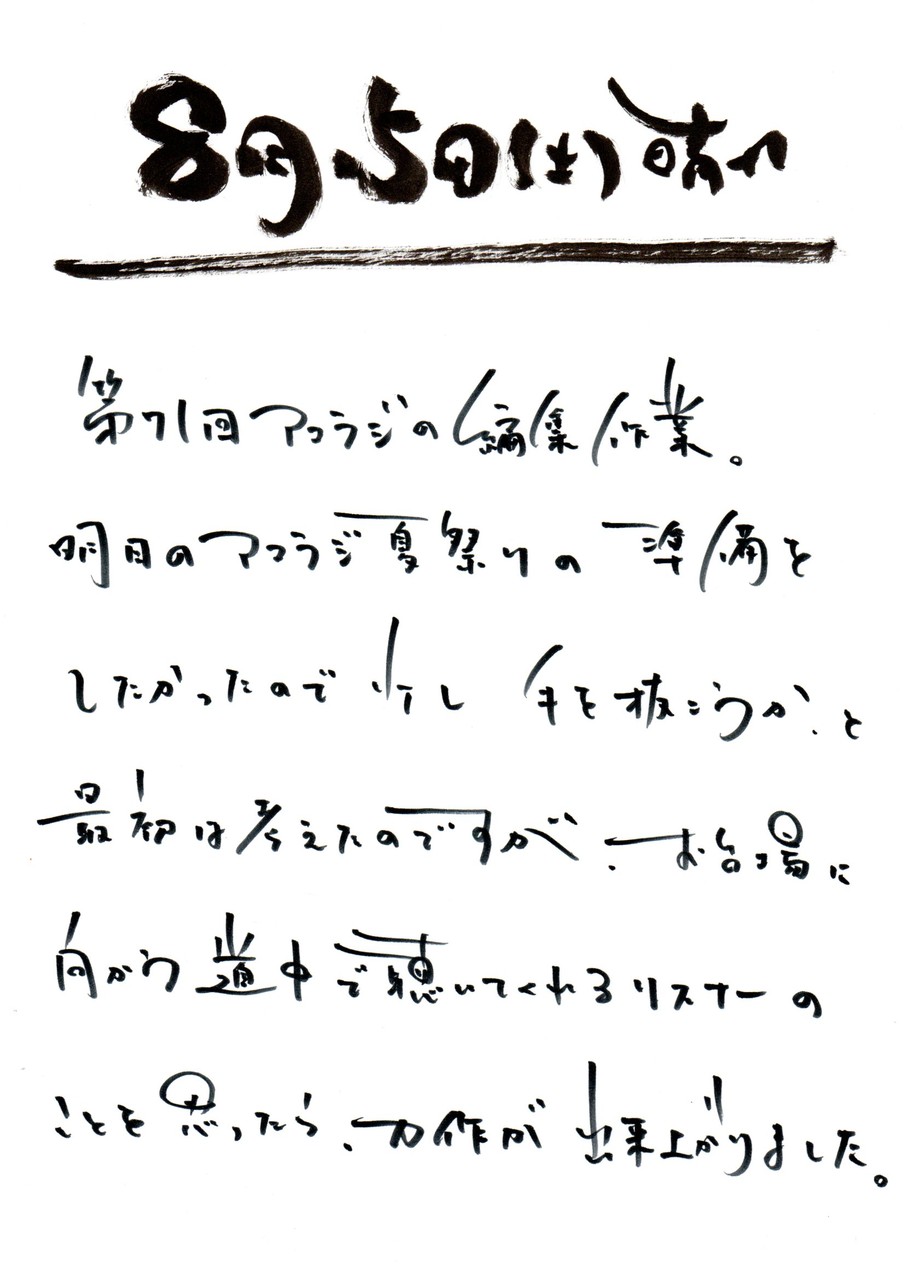 8月5日(土)晴れ
第71回アコラジの編集作業。
明日のアコラジ夏祭りの準備を
したかったので少し手を抜こうか、と
最初は考えたのですが、お台場に
向かう道中で聴いてくれるリスナーの
ことを思ったら、力作が出来上がりました。